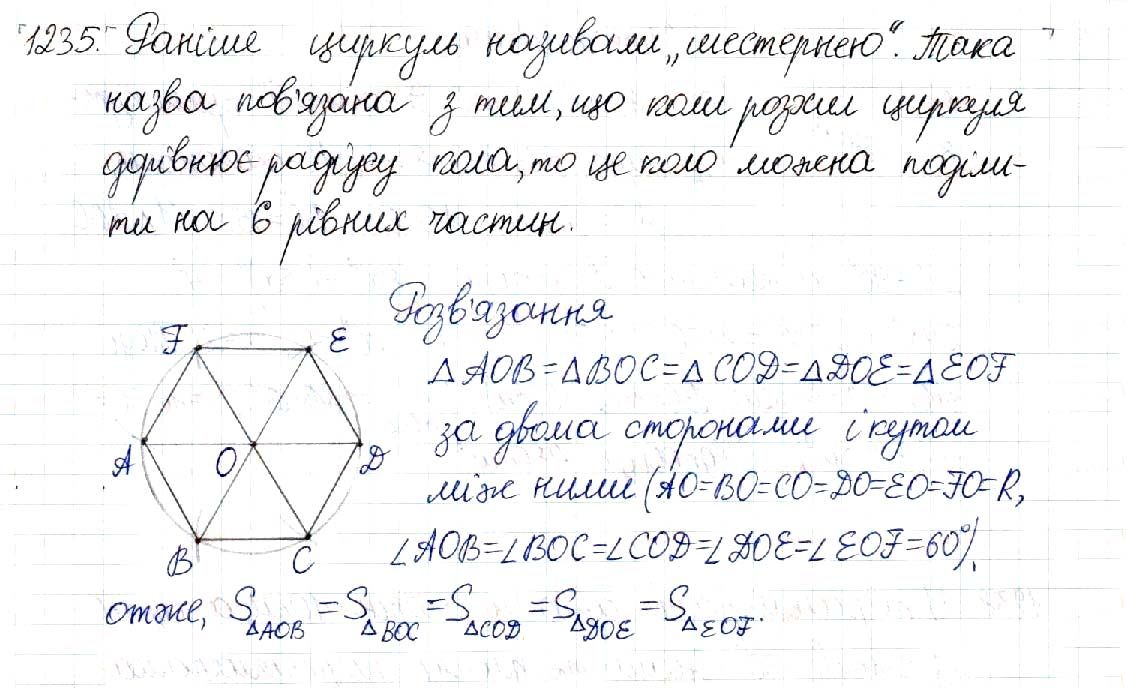 1235. Раніше циркуль називали „шестернею“. Така
назва пов'язана з тим, що коли розхил циркуля
дорівнює радіусу кола, то це коло можна поділи-
ти на 6 рівних частин.
Розв'язання
F E
△AOB=△BOC=△COD=△DOE=△EOF
за двома сторонами і кутом
A O D
між ними (AO=BO=CO=DO=EO=FO=R,
∠AOB=∠BOC=∠COD=∠DOE=∠EOF=60°),
B C
отже, S△AOB = S△BOC = S△COD = S△DOE = S△EOF.